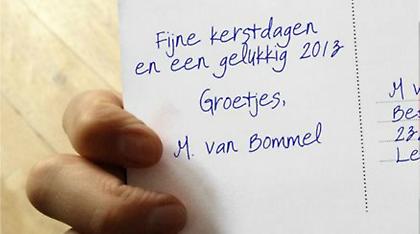 Fijne kerstdagen
en een gelukkig 2013
Groetjes,
M. van Bommel
M v
Be
23
Le